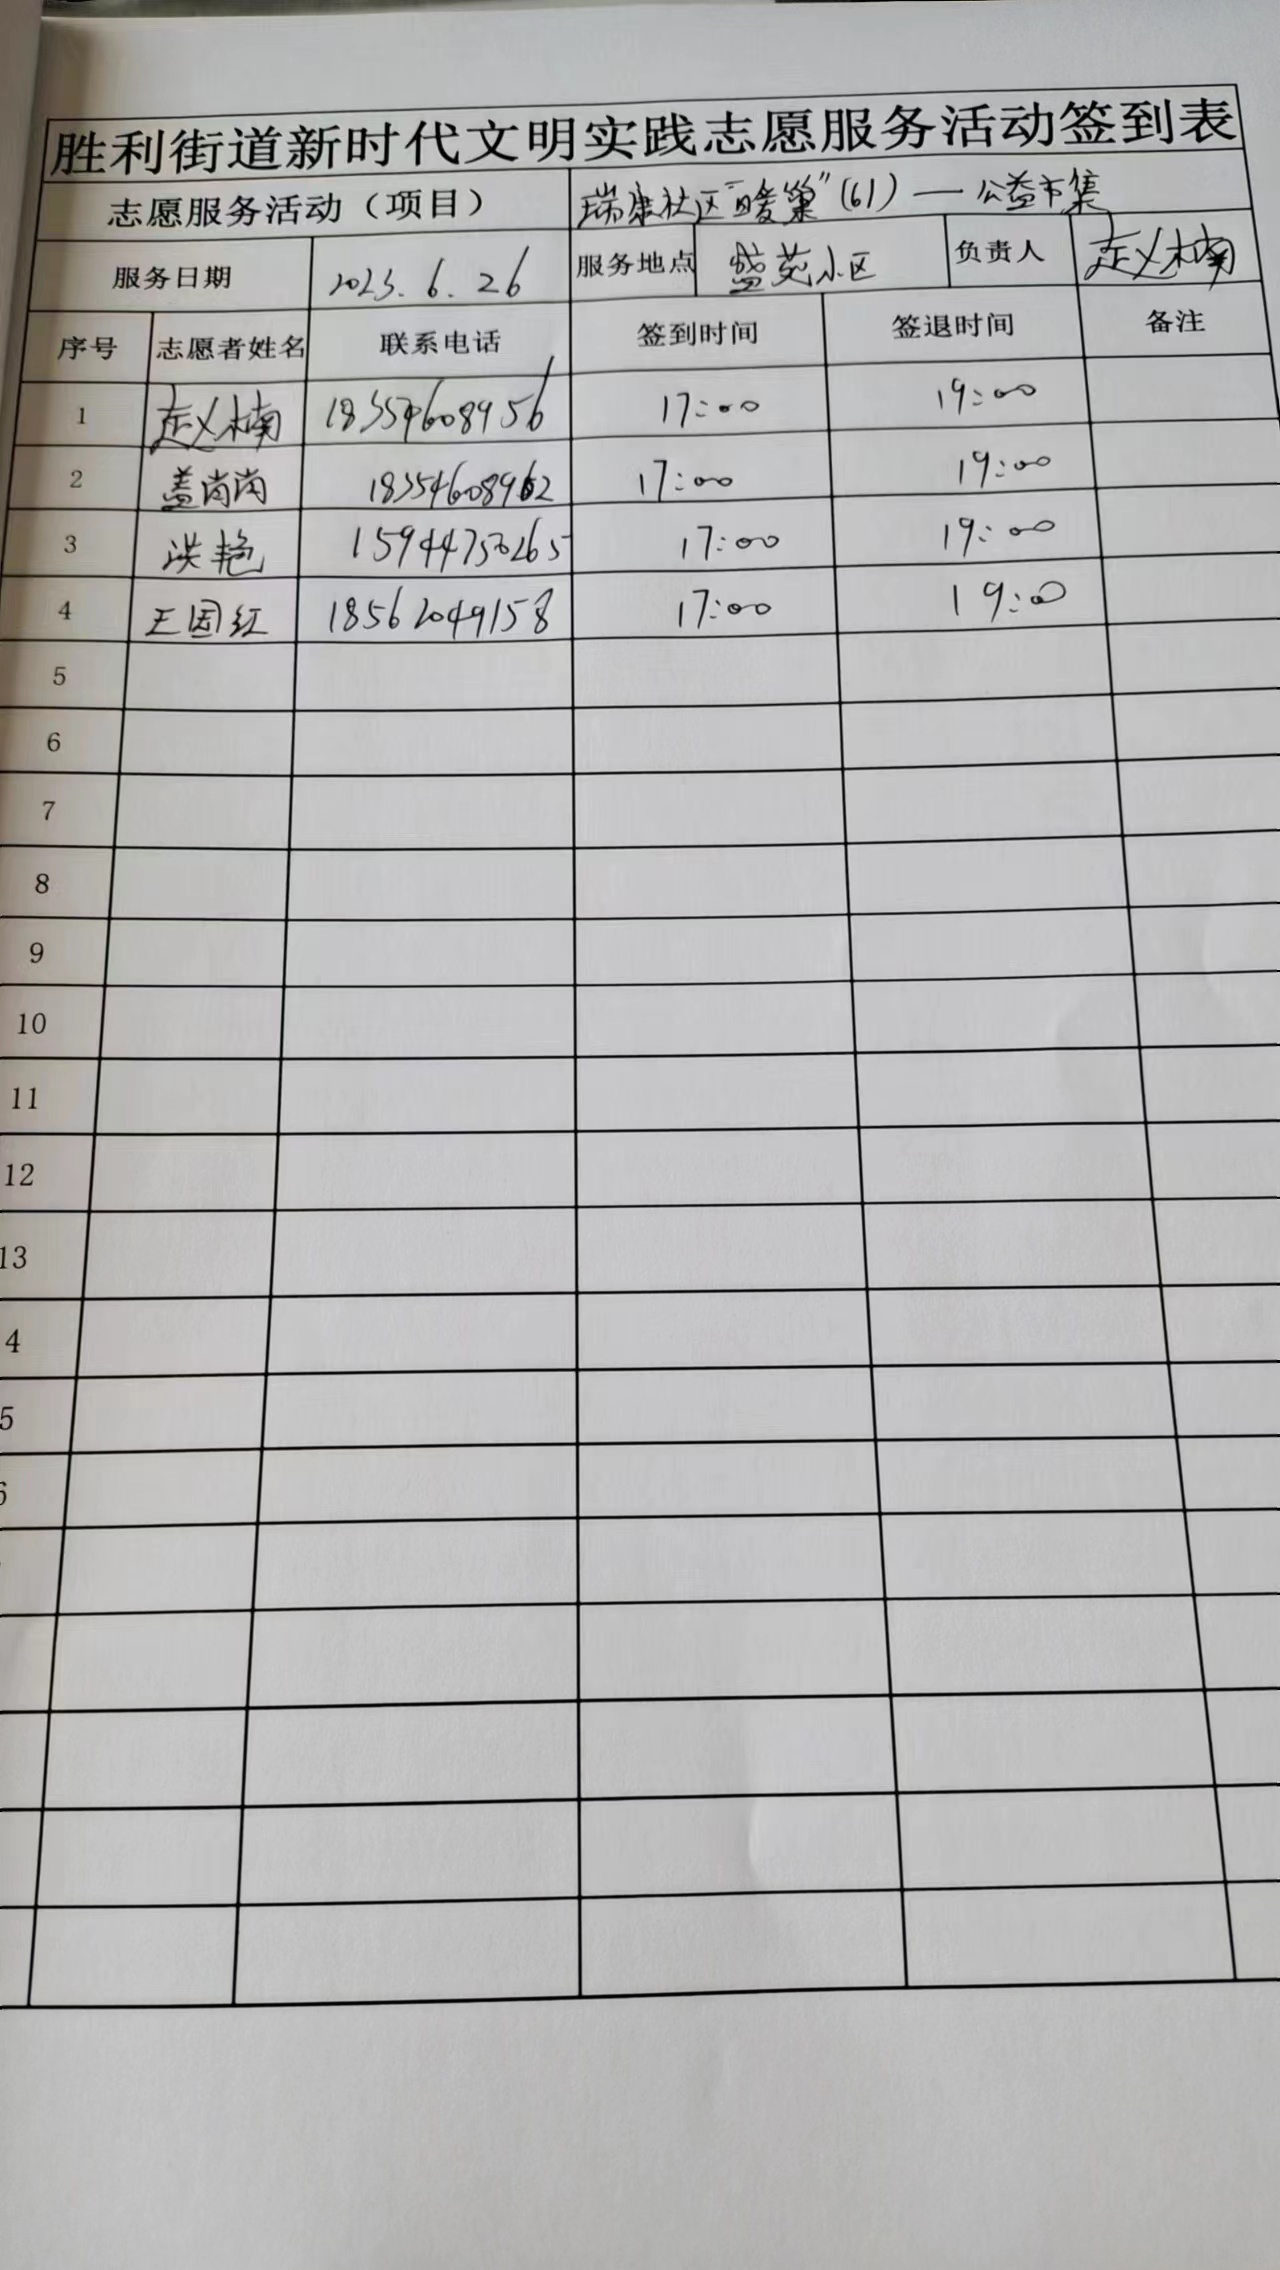 胜利街道新时代文明实践志愿服务活动签到表
志愿服务活动（项目） 瑞康社区"暖巢"(61) — 公益市集
服务日期 2023.6.26 服务地点 盛苑小区 负责人 赵楠
序号 志愿者姓名 联系电话 签到时间 签退时间 备注
1 赵楠 18354608956 17:00 19:00
2 盖岗岗 18354608962 17:00 19:00
3 洪艳 15944750265 17:00 19:00
4 王国红 18562049158 17:00 19:00
5
6
7
8
9
10
11
12
13
4
5
6